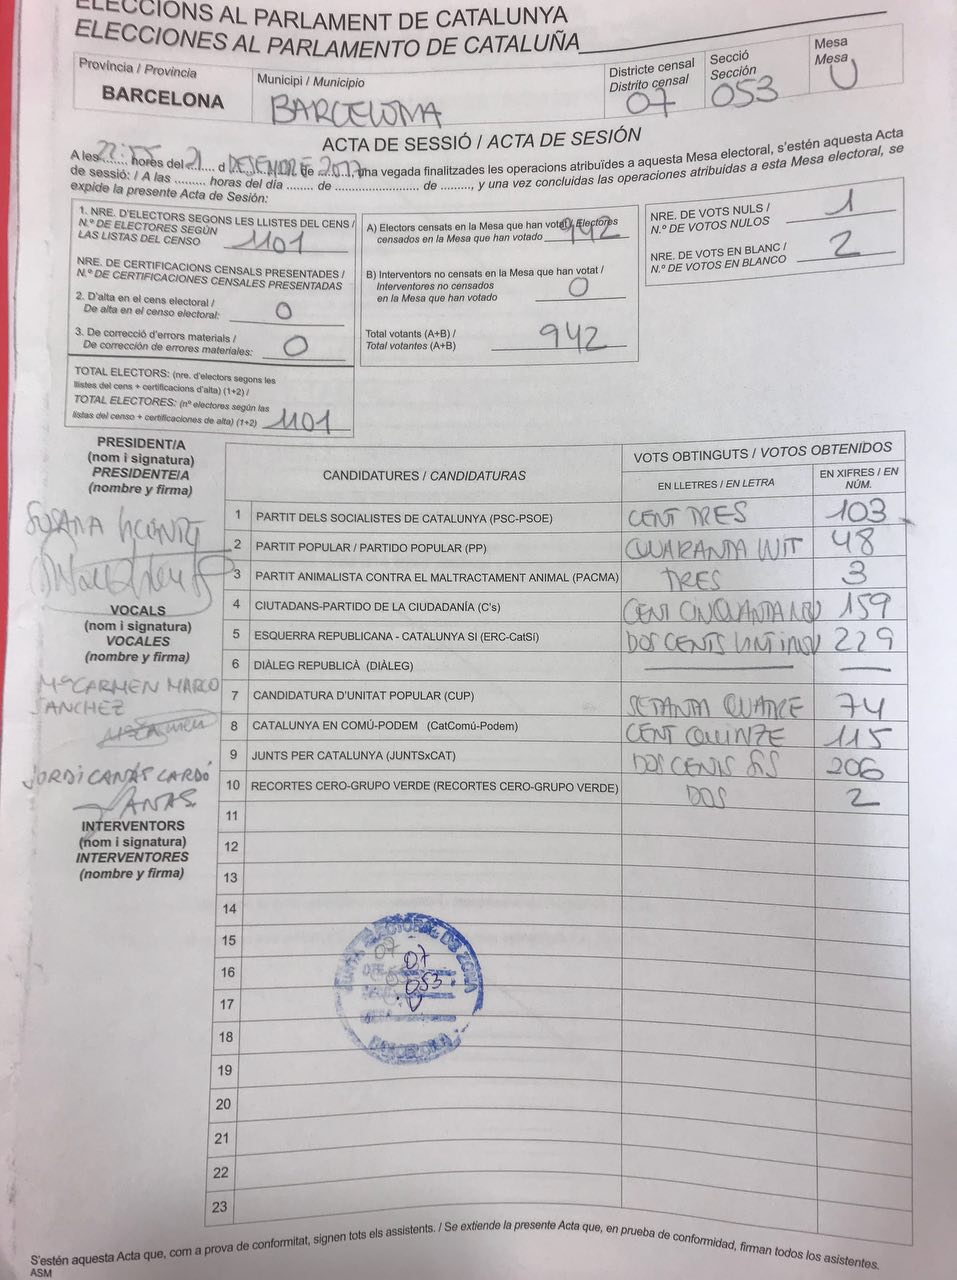 ELECCIONS AL PARLAMENT DE CATALUNYA
ELECCIONES AL PARLAMENTO DE CATALUÑA
Província / Provincia
BARCELONA
Municipi / Municipio
BARCELONA
Districte censal
Distrito censal
07
Secció
Sección
053
Mesa
Mesa
U
ACTA DE SESSIÓ / ACTA DE SESIÓN
A les 22:55 hores del 21 d DESEMBRE de 2017, una vegada finalitzades les operacions atribuïdes a aquesta Mesa electoral, s'estén aquesta Acta
de sessió: / A las ......... horas del día ....... de ...................... de ........., y una vez concluidas las operaciones atribuidas a esta Mesa electoral, se
expide la presente Acta de Sesión:
1. NRE. D'ELECTORS SEGONS LES LLISTES DEL CENS /
N.º DE ELECTORES SEGÚN
LAS LISTAS DEL CENSO 1101
NRE. DE CERTIFICACIONS CENSALS PRESENTADES /
N.º DE CERTIFICACIONES CENSALES PRESENTADAS
2. D'alta en el cens electoral /
De alta en el censo electoral: 0
3. De correcció d'errors materials /
De corrección de errores materiales: 0
TOTAL ELECTORS: (nre. d'electors segons les
llistes del cens + certificacions d'alta) (1+2) /
TOTAL ELECTORES: (nº electores según las
listas del censo + certificaciones de alta) (1+2) 1101
A) Electors censats en la Mesa que han votat / Electores
censados en la Mesa que han votado 942
B) Interventors no censats en la Mesa que han votat /
Interventores no censados
en la Mesa que han votado 0
Total votants (A+B) /
Total votantes (A+B) 942
NRE. DE VOTS NULS /
N.º DE VOTOS NULOS 1
NRE. DE VOTS EN BLANC /
N.º DE VOTOS EN BLANCO 2
PRESIDENT/A
(nom i signatura)
PRESIDENTE/A
(nombre y firma)
SUSANA
VOCALS
(nom i signatura)
VOCALES
(nombre y firma)
Mª CARMEN MARCO
SANCHEZ
JORDI CANAS CARDÓ
INTERVENTORS
(nom i signatura)
INTERVENTORES
(nombre y firma)
CANDIDATURES / CANDIDATURAS
VOTS OBTINGUTS / VOTOS OBTENIDOS
EN LLETRES / EN LETRA
EN XIFRES / EN
NÚM.
1 PARTIT DELS SOCIALISTES DE CATALUNYA (PSC-PSOE) CENT TRES 103
2 PARTIT POPULAR / PARTIDO POPULAR (PP) QUARANTA VUIT 48
3 PARTIT ANIMALISTA CONTRA EL MALTRACTAMENT ANIMAL (PACMA) TRES 3
4 CIUTADANS-PARTIDO DE LA CIUDADANÍA (C's) CENT CINQUANTA NOU 159
5 ESQUERRA REPUBLICANA - CATALUNYA SÍ (ERC-CatSí) DOS CENTS VINT I NOU 229
6 DIÀLEG REPUBLICÀ (DIÀLEG)
7 CANDIDATURA D'UNITAT POPULAR (CUP) SETANTA QUATRE 74
8 CATALUNYA EN COMÚ-PODEM (CatComú-Podem) CENT QUINZE 115
9 JUNTS PER CATALUNYA (JUNTSxCAT) DOS CENTS SIS 206
10 RECORTES CERO-GRUPO VERDE (RECORTES CERO-GRUPO VERDE) DOS 2
11
12
13
14
15
16
17
18
19
20
21
22
23
JUNTA ELECTORAL DE ZONA
07
07
053
U
BARCELONA
S'estén aquesta Acta que, com a prova de conformitat, signen tots els assistents. / Se extiende la presente Acta que, en prueba de conformidad, firman todos los asistentes.
ASM